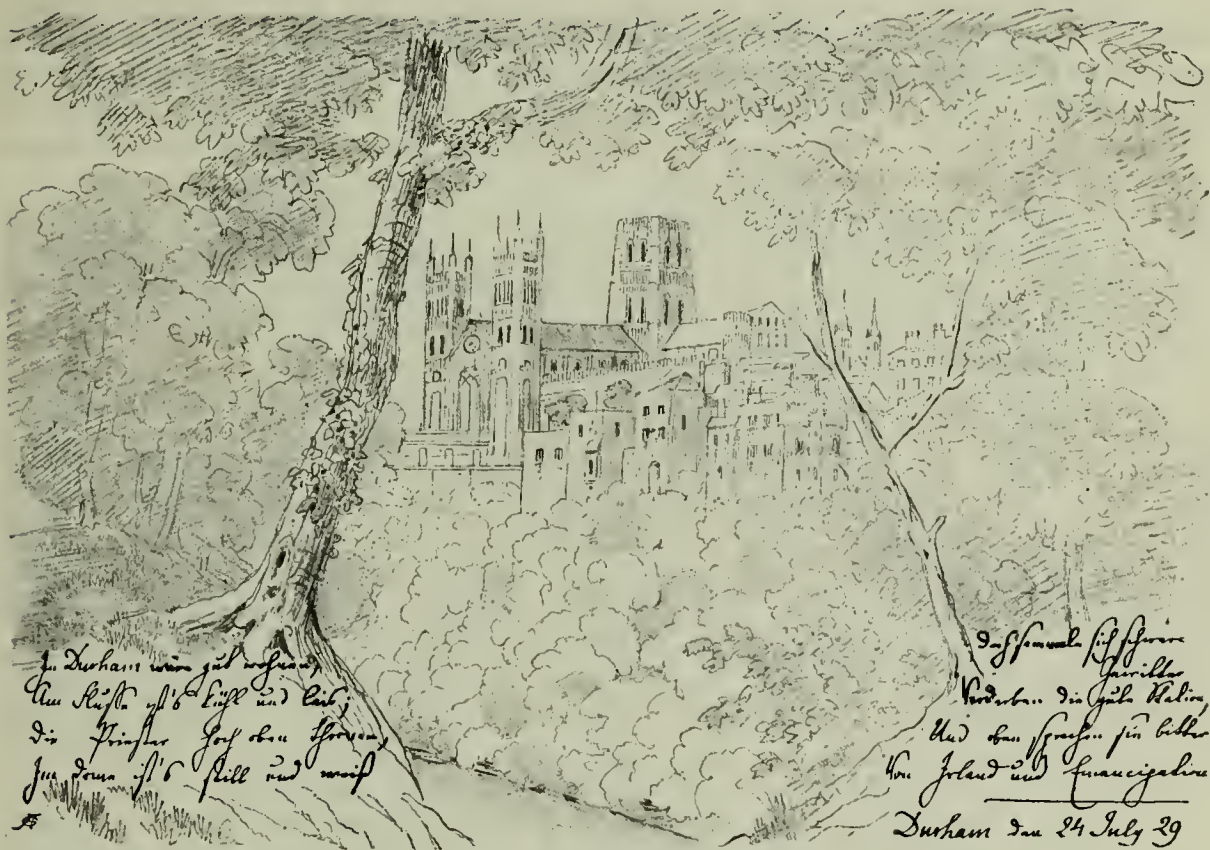 In Durham wäre gut wohnen,
Am Flusse ist's kühl und leis;
Die Priester hoch oben thronen,
Im Dome ist's still und weiß
Doch sammeln sich schwere
Gewitter
Verderben die gute Station,
Und oben sprechen sie bitter
Von Irland und Emancipation
Durham den 24 July 29